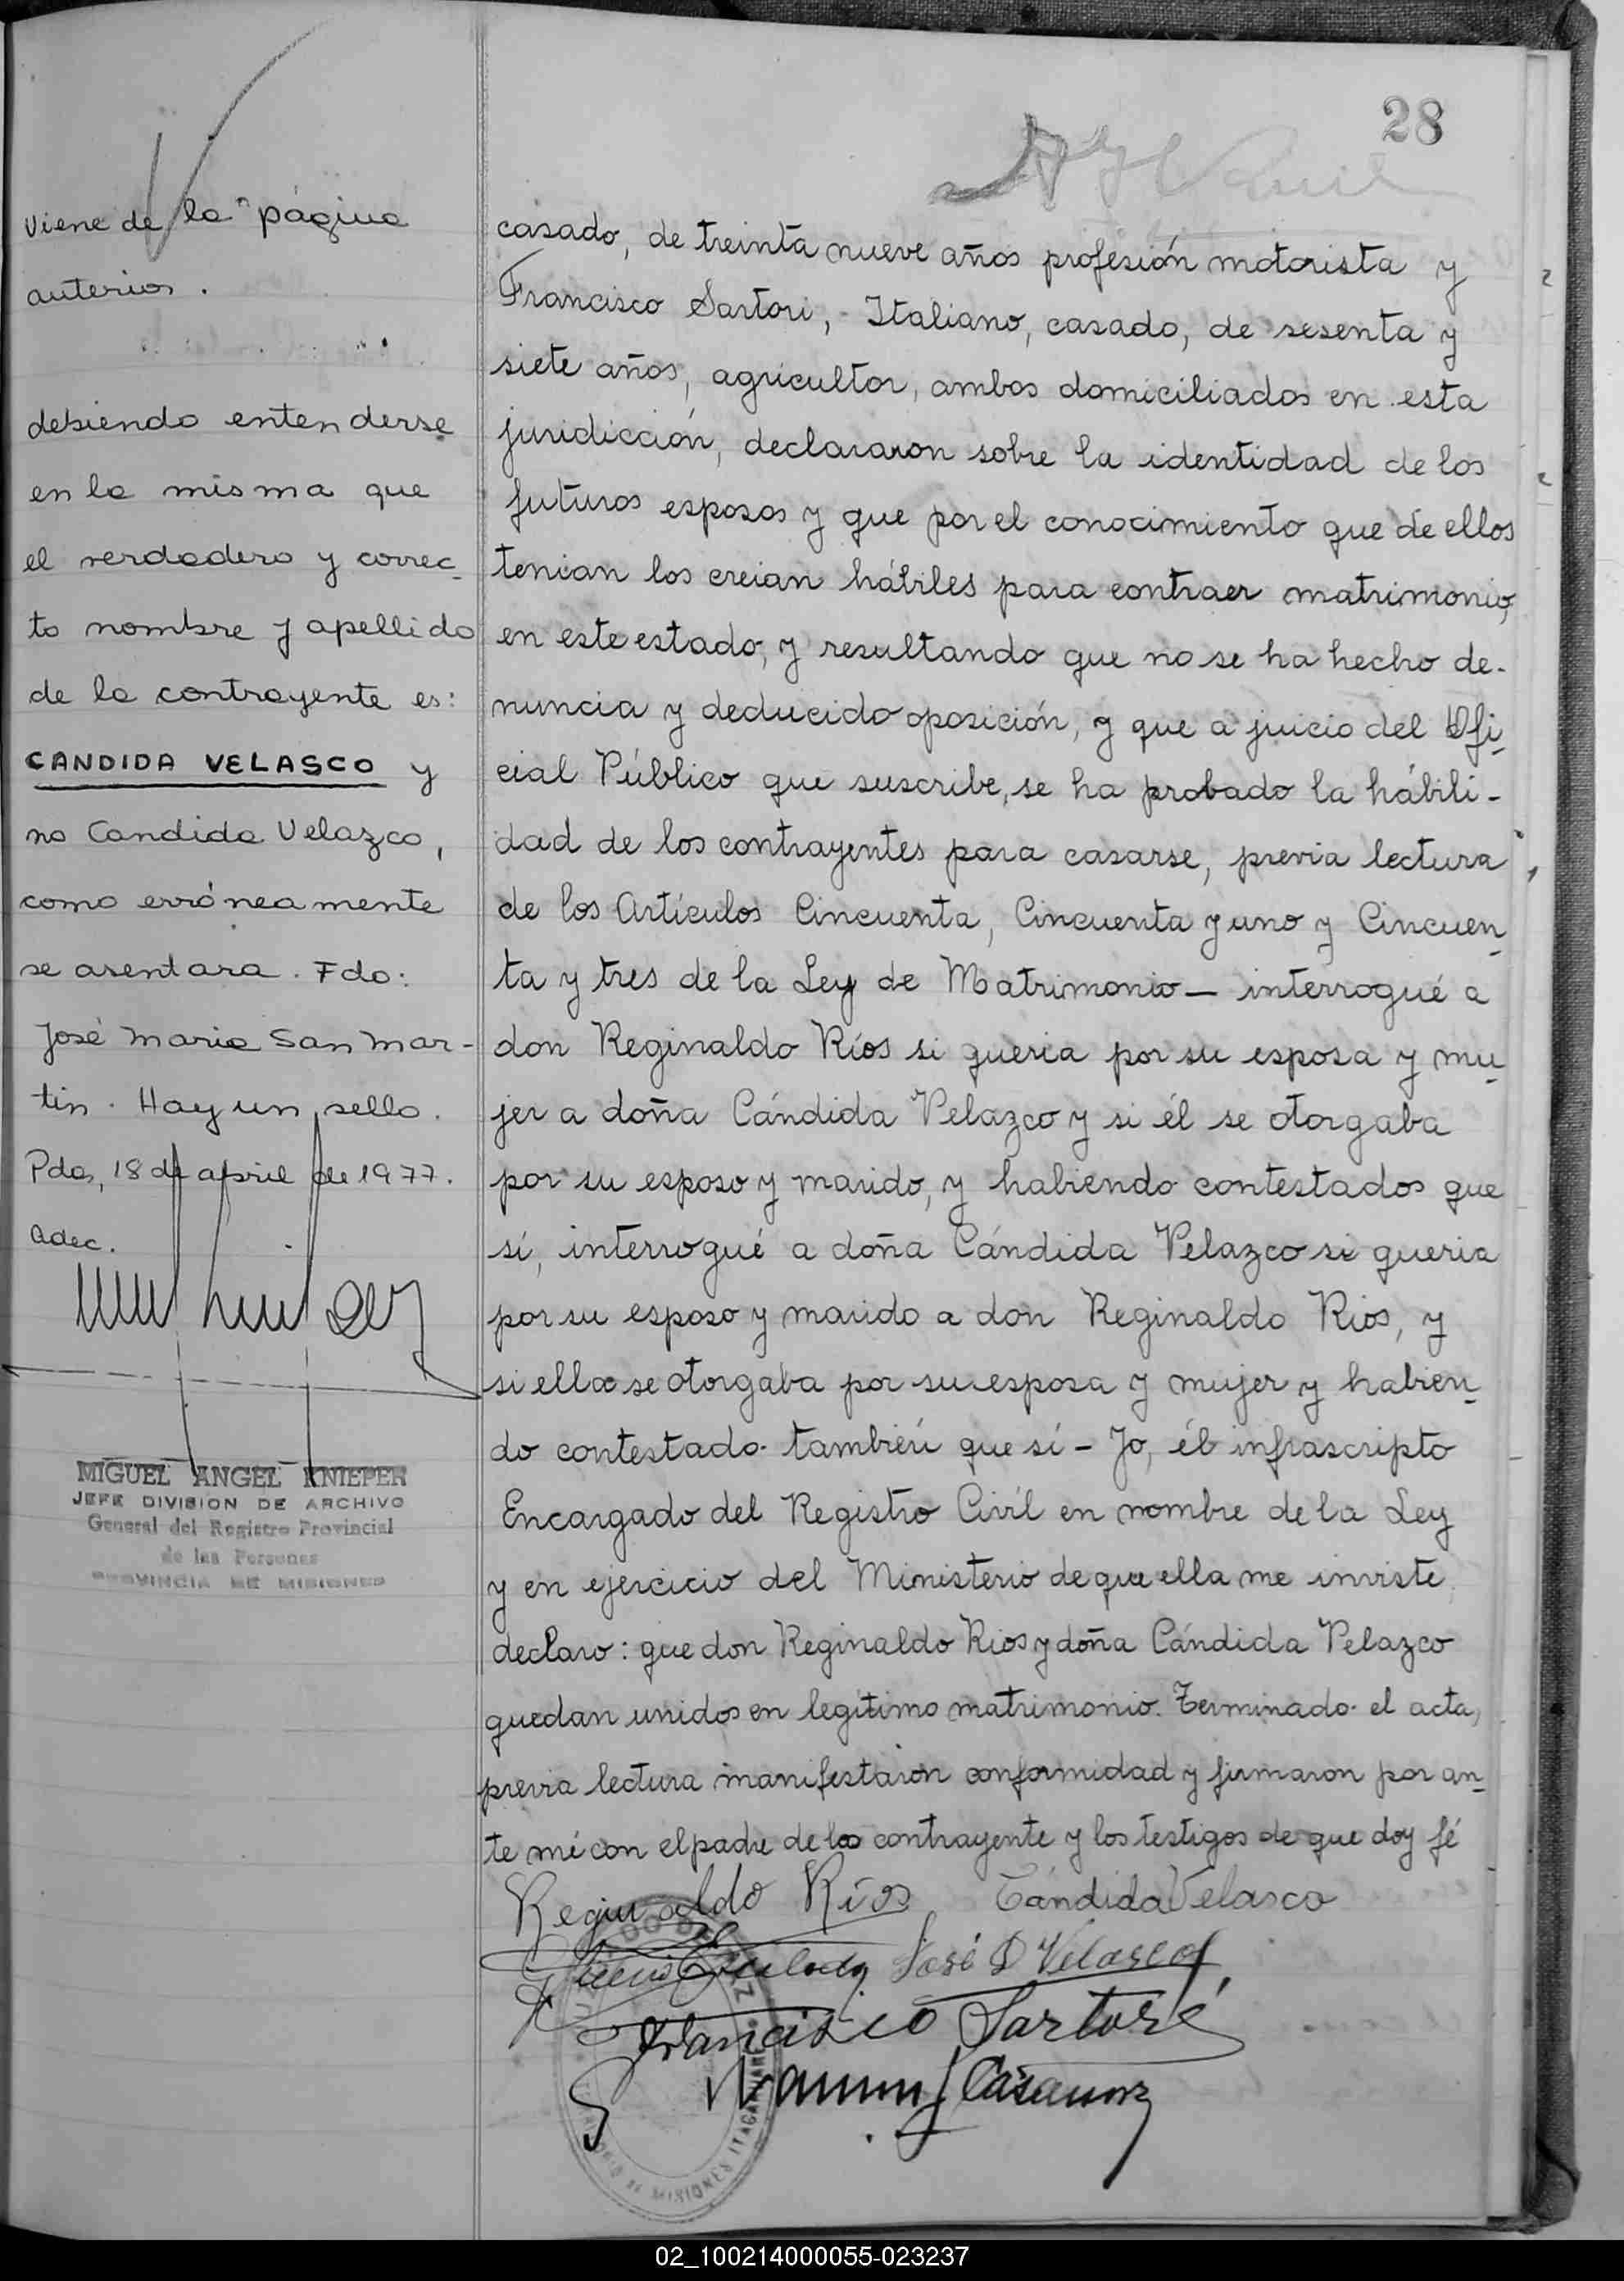 28
Viene de la página
anterior.
debiendo entenderse
en la misma que
el verdadero y correc-
to nombre y apellido
de la contrayente es:
CANDIDA VELASCO y
no Candida Velazco,
como erróneamente
se asentara. Fdo:
José Maria San Mar-
tin. Hay un sello.
Pdas, 18 de april de 1977.
adec.
MIGUEL ANGEL KNIEPER
JEFE DIVISION DE ARCHIVO
General del Registro Provincial
de las Personas
PROVINCIA DE MISIONES
casado, de treinta nueve años profesión motorista y
Francisco Sartori, Italiano, casado, de sesenta y
siete años, agricultor, ambos domiciliados en esta
juridicción, declararon sobre la identidad de los
futuros esposos y que por el conocimiento que de ellos
tenian los creian hábiles para contraer matrimonio,
en este estado, y resultando que no se ha hecho de-
nuncia y deducido oposición, y que a juicio del Ofi-
cial Público que suscribe, se ha probado la hábili-
dad de los contrayentes para casarse, previa lectura
de los Artículos Cincuenta, Cincuenta y uno y Cincuen-
ta y tres de la Ley de Matrimonio — interrogué a
don Reginaldo Ríos si queria por su esposa y mu-
jer a doña Cándida Velazco y si él se otorgaba
por su esposo y marido, y habiendo contestados que
sí, interrogué a doña Cándida Velazco si queria
por su esposo y marido a don Reginaldo Rios, y
si ella se otorgaba por su esposa y mujer y habien-
do contestado también que sí - Yo, él infrascripto
Encargado del Registro Civíl en nombre de la Ley
y en ejercicio del Ministerio de que ella me inviste
declaro: que don Reginaldo Rios y doña Cándida Velazco
quedan unidos en legítimo matrimonio. Terminado el acta,
previa lectura manifestaron conformidad y firmaron por an-
te mí con el padre de la contrayente y los testigos de que doy fé
Reginaldo Ríos Cándida Velasco
José D Velasco
Francisco Sartori
MISIONES ITACARUARE
02_100214000055-023237